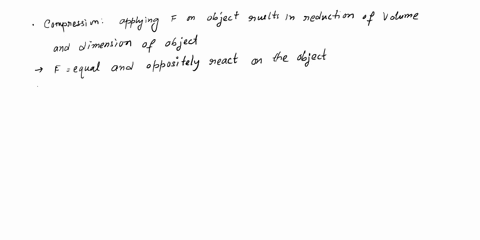 · Compression: applying F on object results in reduction of Volume
and dimension of object
→ F = equal and oppositely react on the object